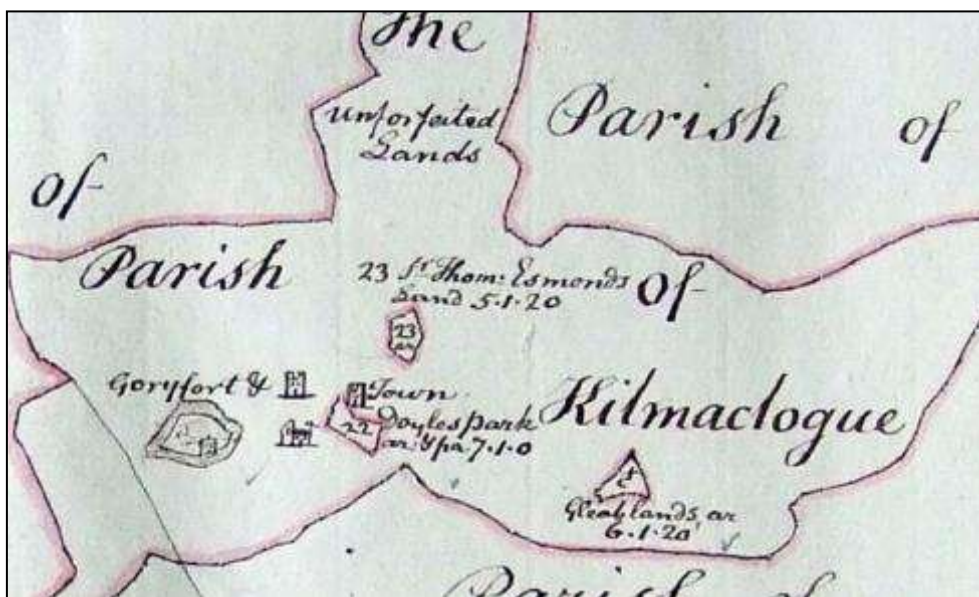 The
unforfeited
Lands
Parish of
of
Parish
23 Sr. Thom: Esmonds
Land 5.1.20
of
23
ar
Goryfort &
Town
Doylespark
ar. & pa. 7.1.0
22
Kilmaclogue
Gleablands, ar
6.1.20
Parish of